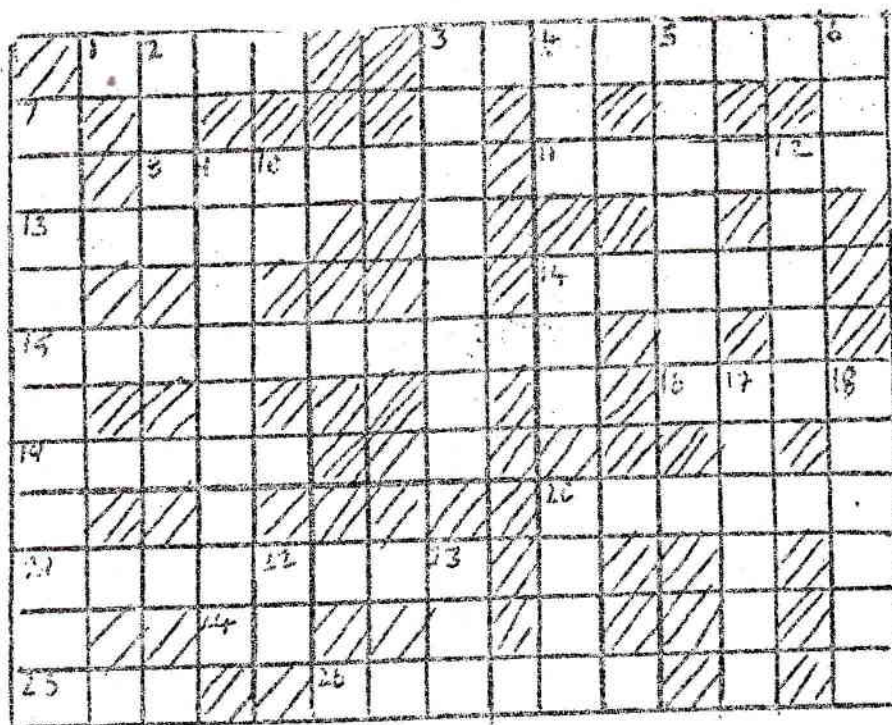 1 2 3 4 5 6
7
8 9 10 11 12
13
14
15
16 17 18
19
20
21 22 23
24
25 26